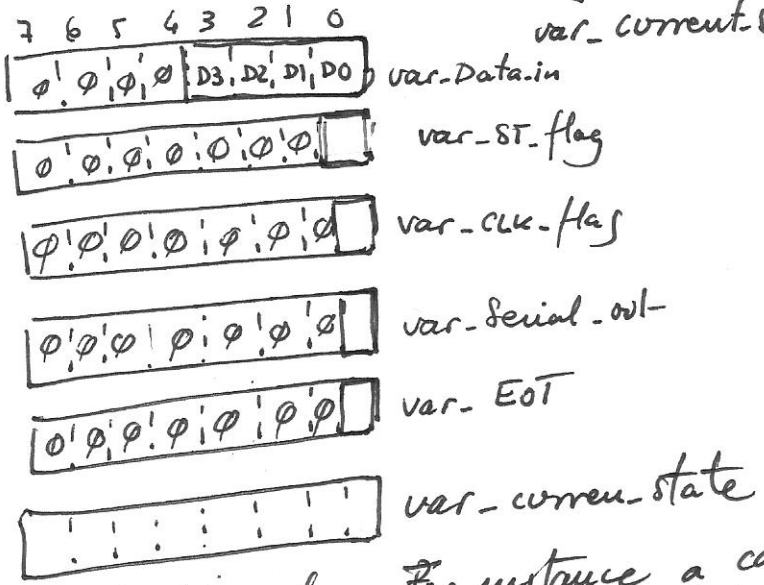 7 6 5 4 3 2 1 0
var_current_s
Ø Ø Ø Ø D3 D2 D1 D0 var_Data_in
Ø Ø Ø Ø Ø Ø Ø var_ST_flag
Ø Ø Ø Ø Ø Ø Ø var_CLK_flag
Ø Ø Ø Ø Ø Ø Ø var_Serial_out
Ø Ø Ø Ø Ø Ø Ø var_EOT
var_curren_state
instance a